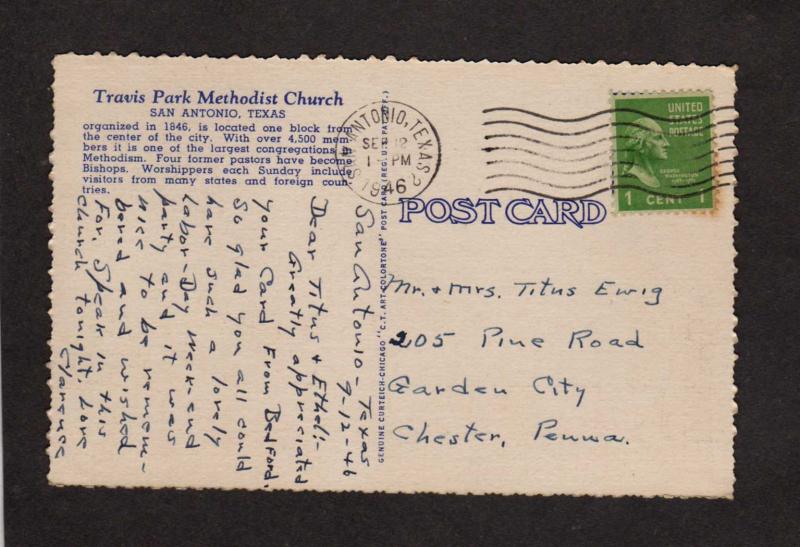 Travis Park Methodist Church
SAN ANTONIO, TEXAS
organized in 1846, is located one block from
the center of the city. With over 4,500 mem-
bers it is one of the largest congregations
Methodism. Four former pastors have become
Bishops. Worshippers each Sunday include
visitors from many states and foreign coun-
tries.
San Antonio - Texas
9-12-46
Dear Titus & Ethel:-
Greatly appreciated
your Card From Bedford.
So glad you all could
have such a lovely
Labor-Day week-end
party and it was
nice to be remem-
bered and wished
For. Speak in this
church tonight. Love
Clarence
GENUINE CURTEICH-CHICAGO "C.T. ART-COLORTONE" POST CARD (REG. U.S. PAT. OFF.)
SAN ANTONIO, TEXAS 2
SEP 12
1 PM
1946
UNITED
STATES
POSTAGE
GEORGE
WASHINGTON
1 CENT 1
POST CARD
Mr. & Mrs. Titus Ewig
205 Pine Road
Garden City
Chester, Penna.